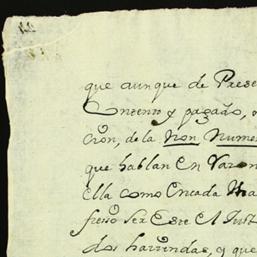 que aunque de Prese
Contento y pagado, 
cion, de la Non Nume
que hablan en razon
ella como en cada
fieso ser este el Just
dos haziendas, y que